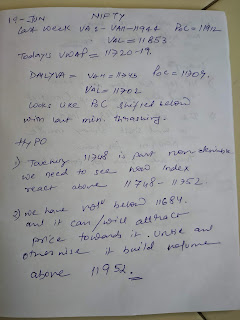 19-JUN NIFTY
Last week VAS - VAH-11944 PoC = 11912
VAL = 11853
Today's VWAP = 11720.19.
DAILY VA = VAH = 11745 PoC = 11709.
VAL = 11702
Looks like PoC shifted below
with last min. thrusting.
HYPO
1) Technically 11748 is part
we need to see how index
react above 11748 - 11752.
2) We have below 11684.
and it can/will attract
price towards it. Unless and
otherwise it build volume
above 11952.